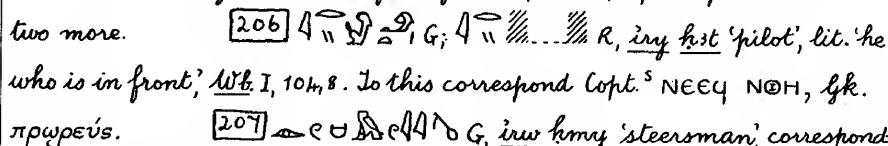 two more. 206 G; R, iry ḥꜣt 'pilot', lit. 'he
who is in front,' Wb. I, 104, 8. To this correspond Copt.ˢ ⲛⲉⲉϥ ⲛⲑⲏ, Gk.
πρωρεύς. 207 G, irw ḥmy 'steersman', correspond